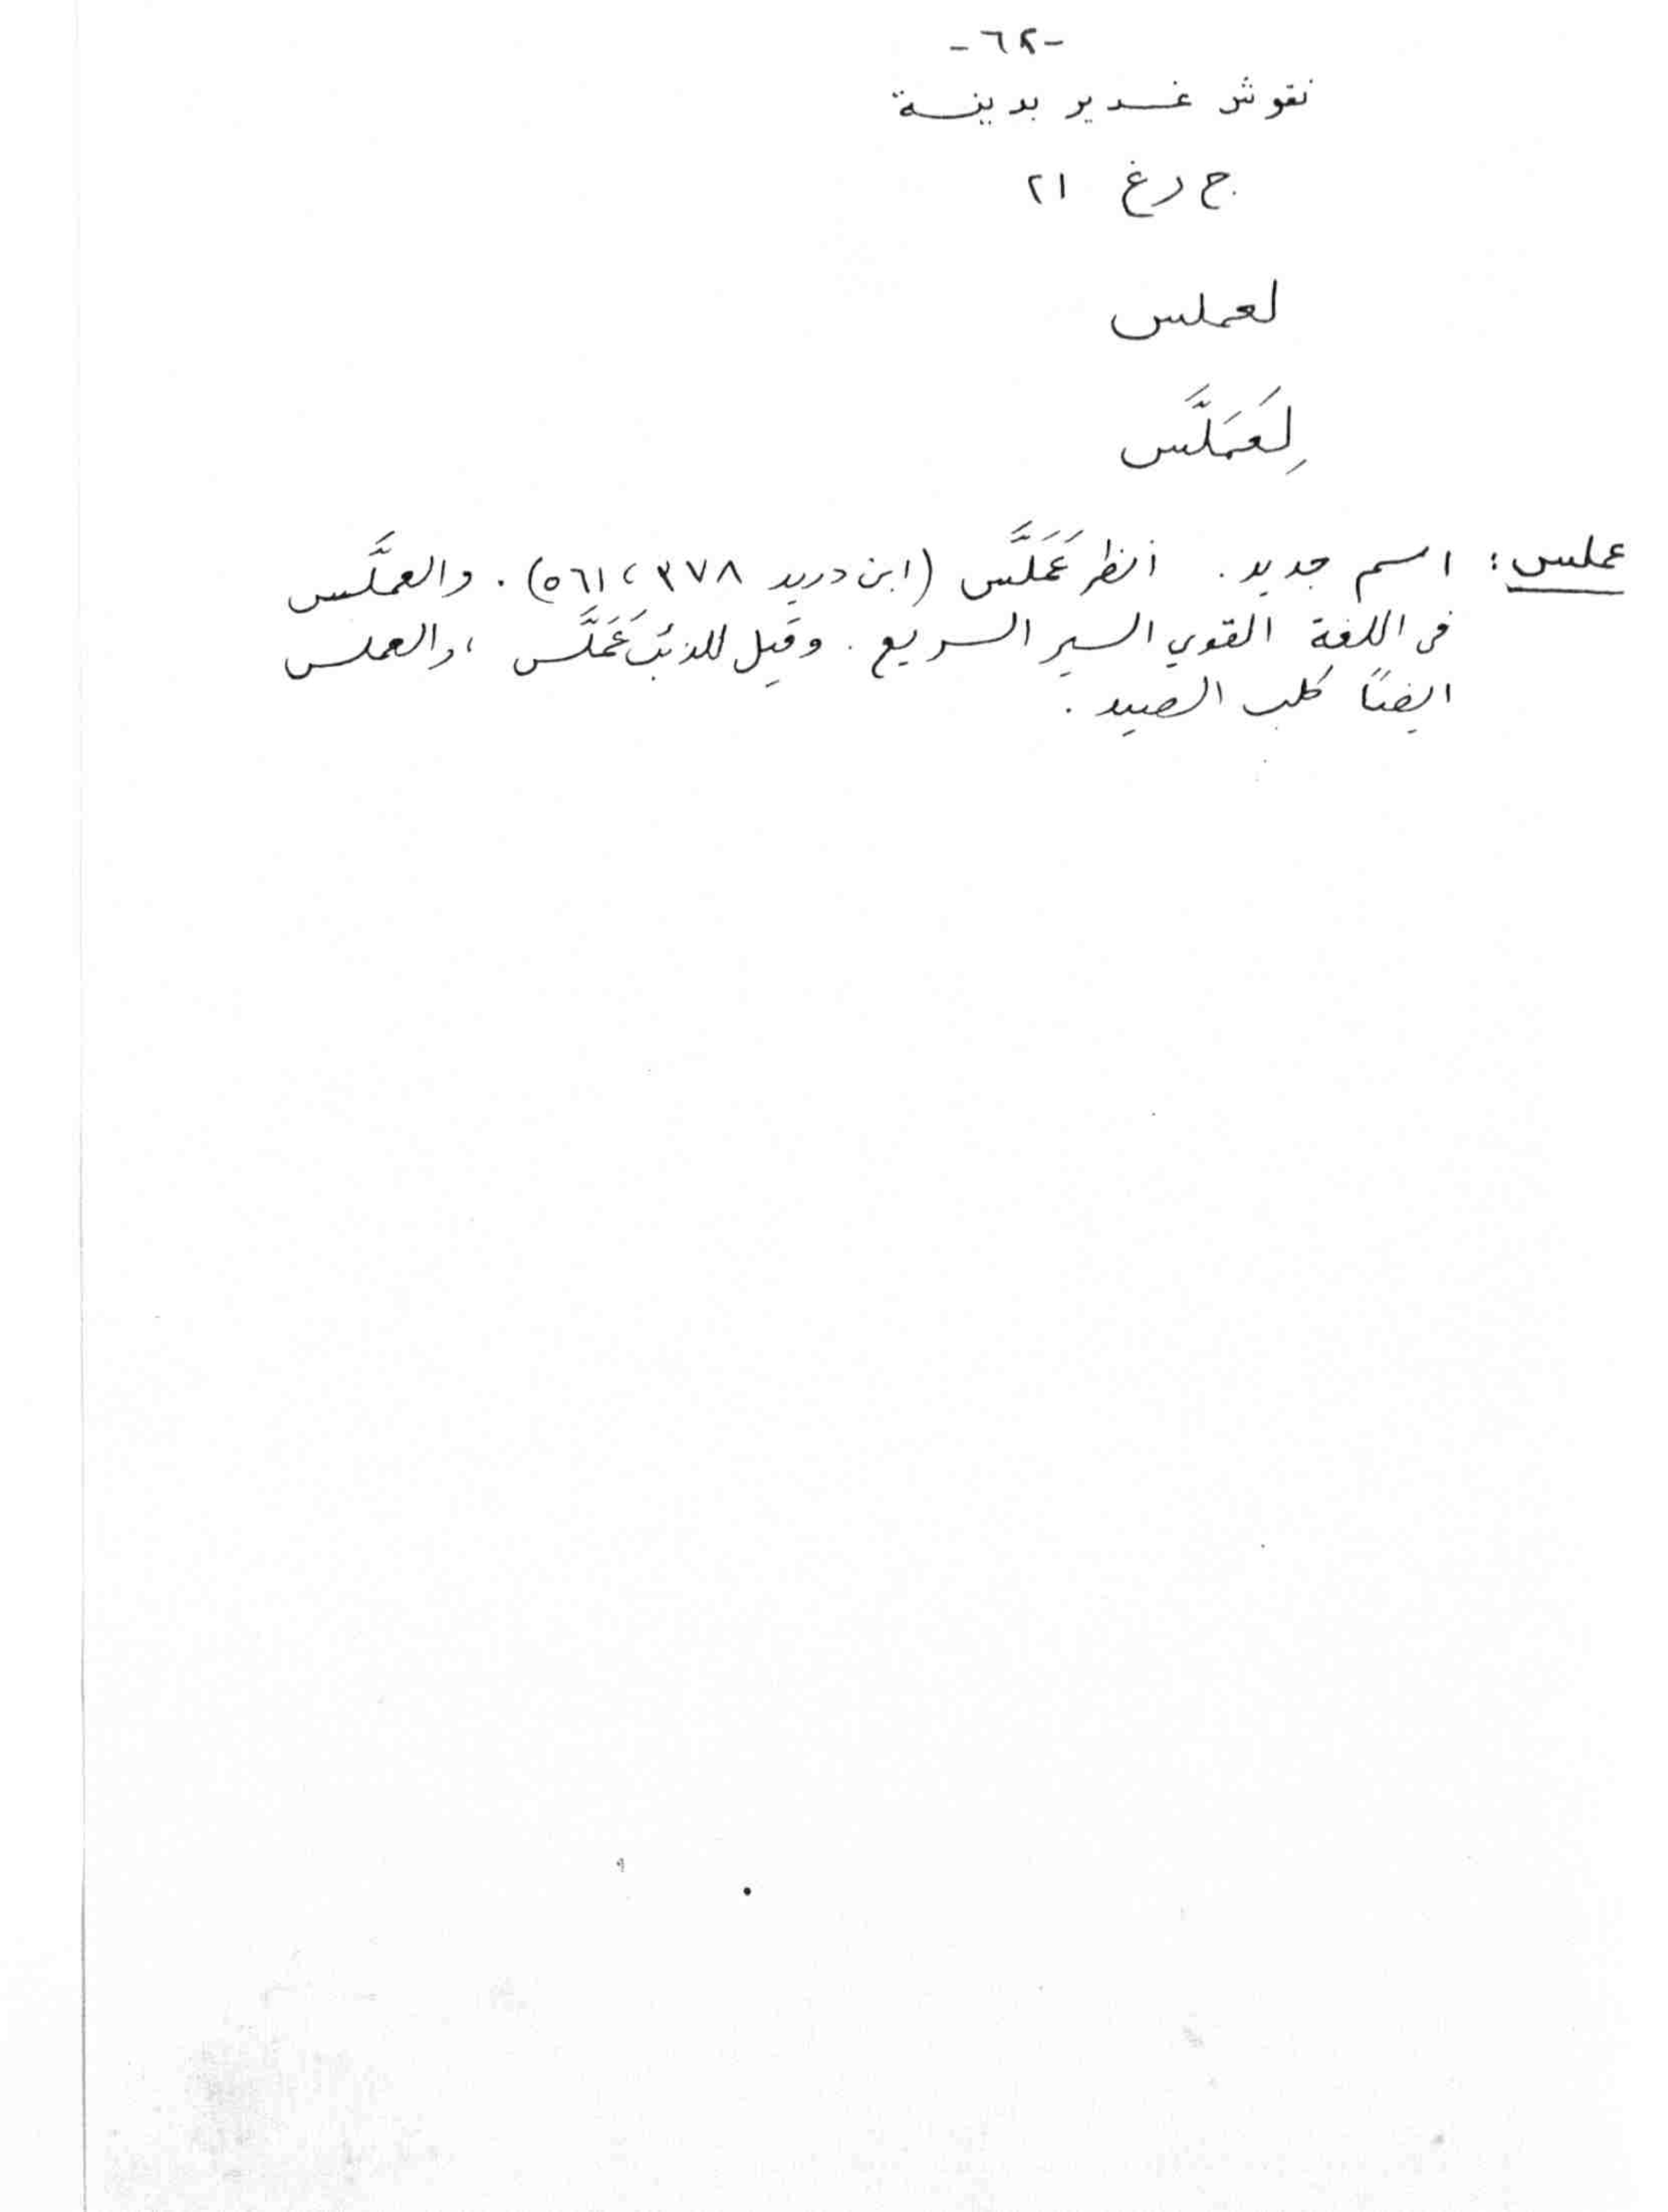 -٦٢-
نقوش غدير بدينة
ج ر غ ٢١
لعملس
لِعَمَلَّس
عملس: اسم جديد. أنظر عَمَلَّس (ابن دريد ٣٧٨، ٥٦١). والعملَّس
في اللغة القوي السير السريع. وقيل للذئب عَمَلَّس، والعملس
ايضاً كلب الصيد.